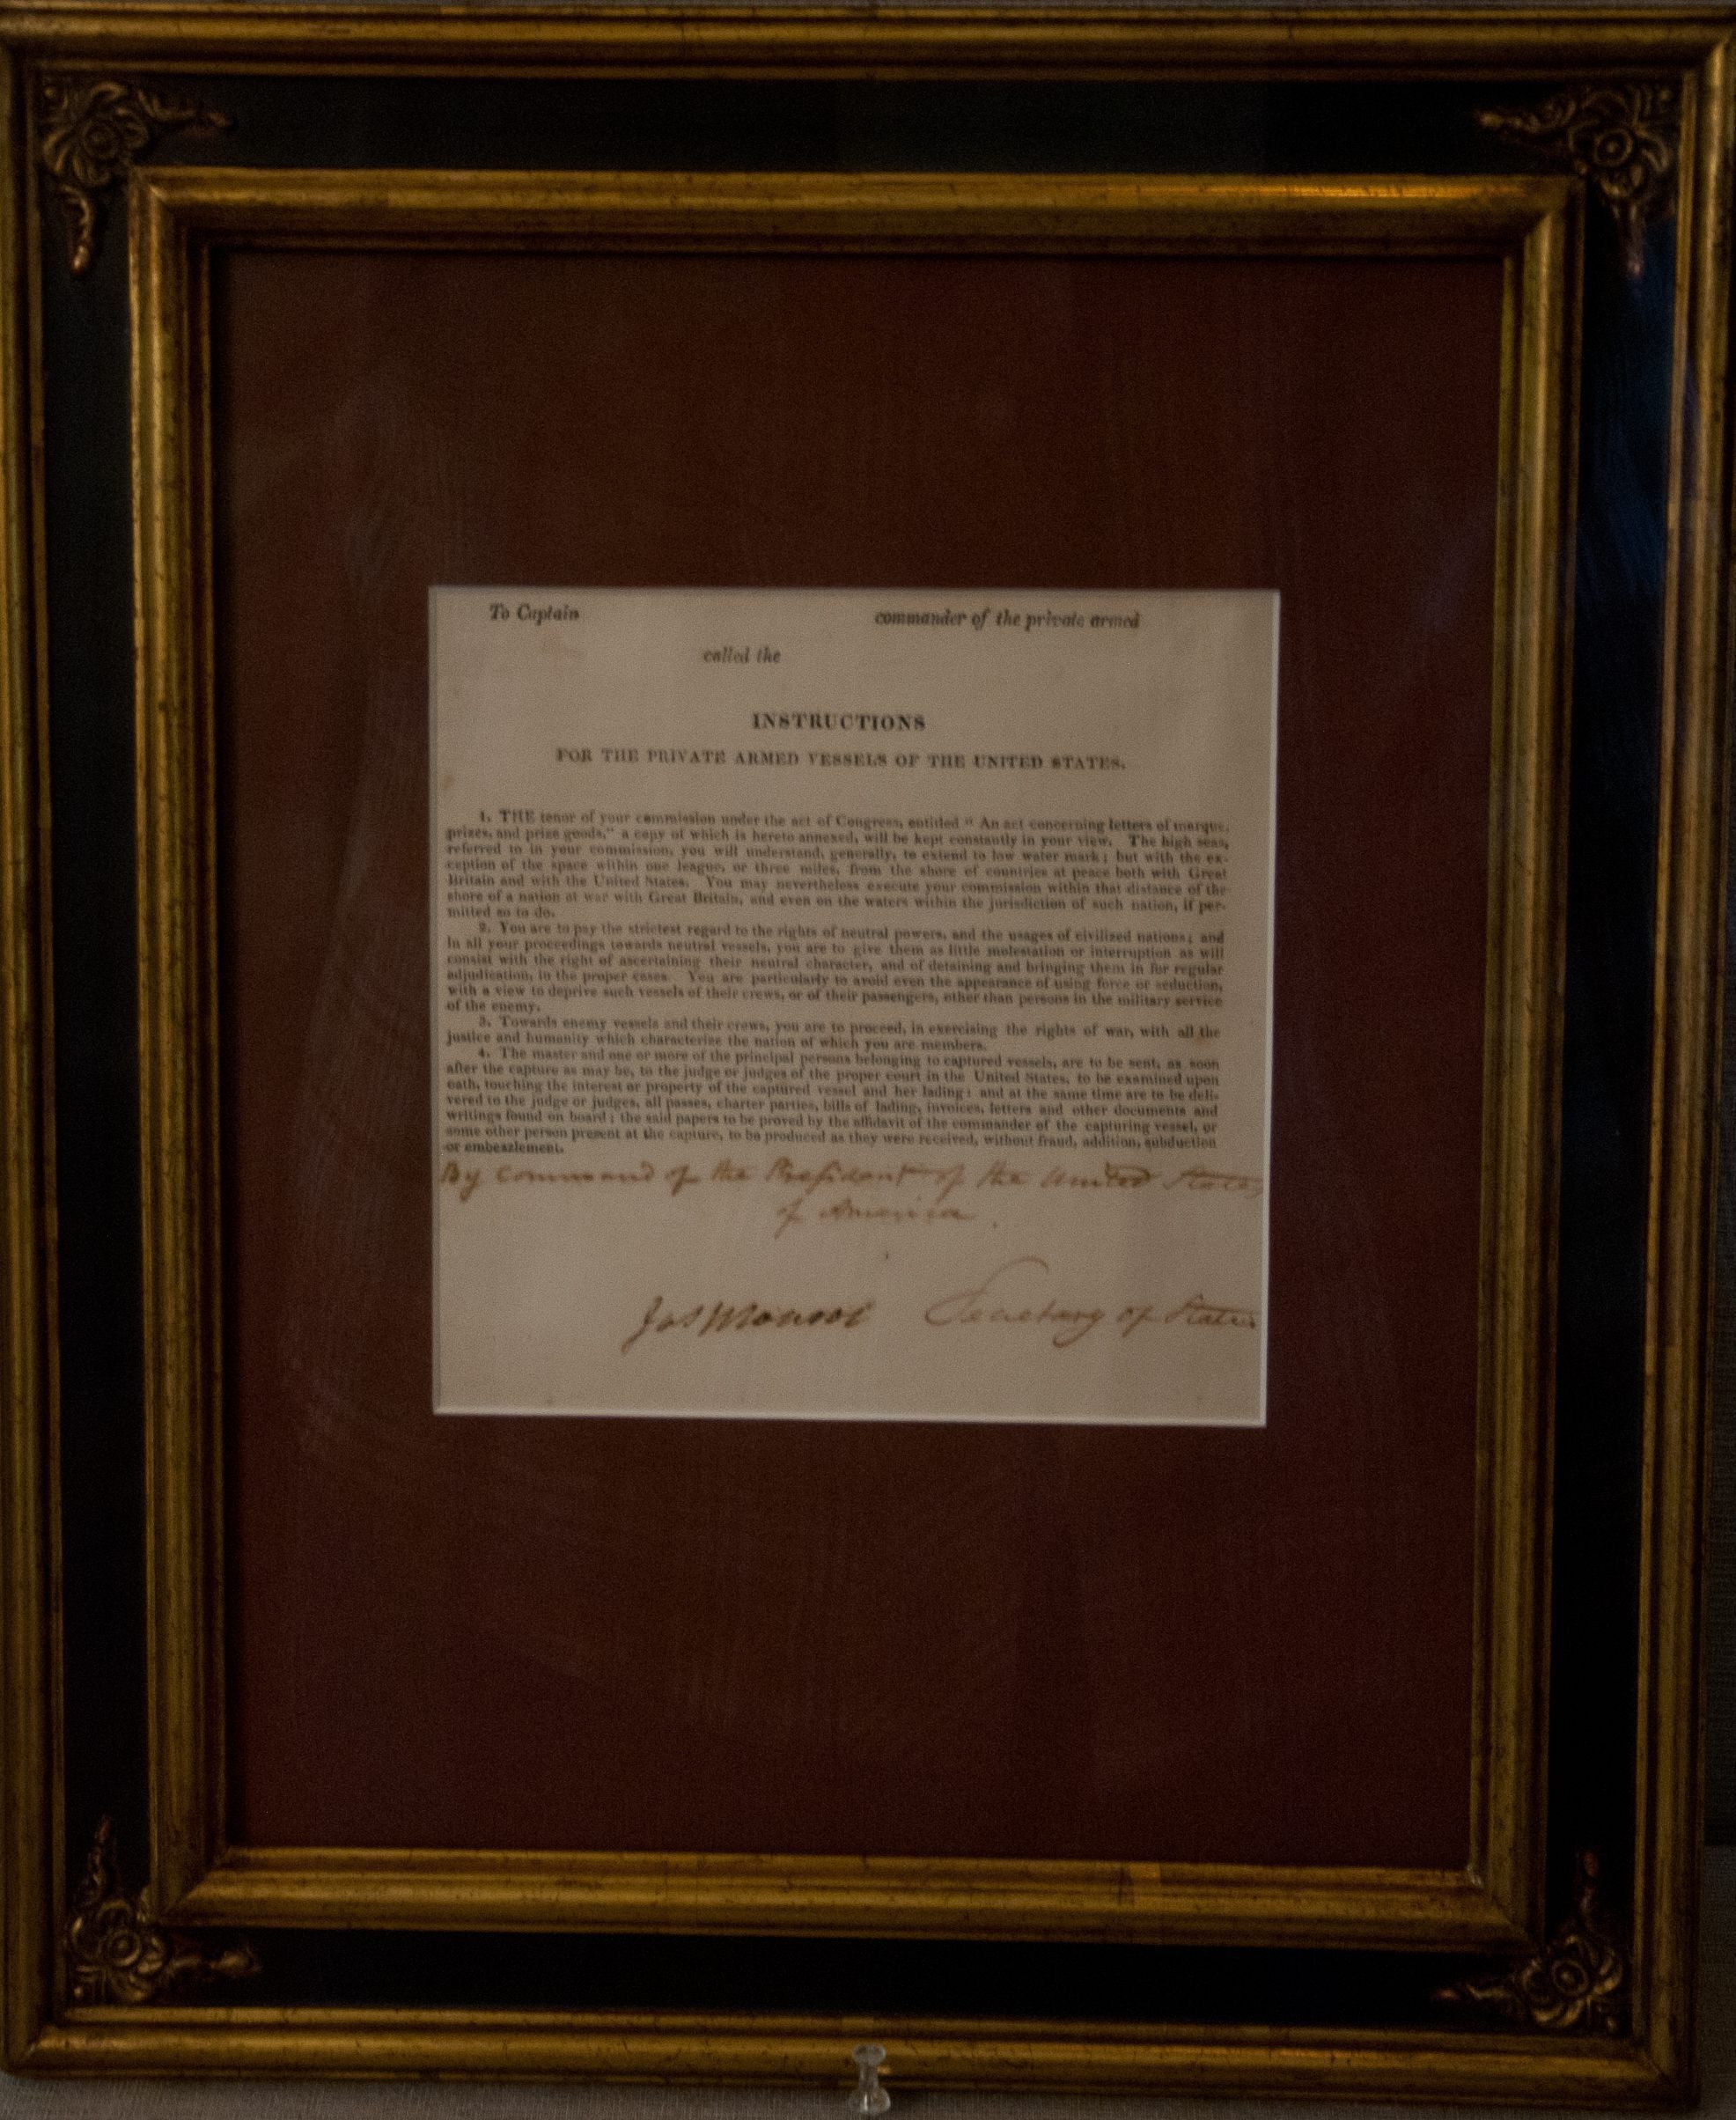 To Captain commander of the private armed
called the
INSTRUCTIONS
FOR THE PRIVATE ARMED VESSELS OF THE UNITED STATES.
1. THE tenor of your commission under the act of Congress, entitled “ An act concerning letters of marque,
prizes, and prize goods,” a copy of which is hereto annexed, will be kept constantly in your view. The high seas,
referred to in your commission, you will understand, generally, to extend to low water mark; but with the ex-
ception of the space within one league, or three miles, from the shore of countries at peace both with Great
Britain and with the United States. You may nevertheless execute your commission within that distance of the
shore of a nation at war with Great Britain, and even on the waters within the jurisdiction of such nation, if per-
mitted so to do.
2. You are to pay the strictest regard to the rights of neutral powers, and the usages of civilized nations; and
in all your proceedings towards neutral vessels, you are to give them as little molestation or interruption as will
consist with the right of ascertaining their neutral character, and of detaining and bringing them in for regular
adjudication, in the proper cases. You are particularly to avoid even the appearance of using force or seduction,
with a view to deprive such vessels of their crews, or of their passengers, other than persons in the military service
of the enemy.
3. Towards enemy vessels and their crews, you are to proceed, in exercising the rights of war, with all the
justice and humanity which characterize the nation of which you are members.
4. The master and one or more of the principal persons belonging to captured vessels, are to be sent, as soon
after the capture as may be, to the judge or judges of the proper court in the United States, to be examined upon
oath, touching the interest or property of the captured vessel and her lading: and at the same time are to be deli-
vered to the judge or judges, all passes, charter parties, bills of lading, invoices, letters and other documents and
writings found on board; the said papers to be proved by the affidavit of the commander of the capturing vessel, or
some other person present at the capture, to be produced as they were received, without fraud, addition, subduction
or embezzlement.
By Command of the President of the United States
of America.
Jas Monroe Secretary of State